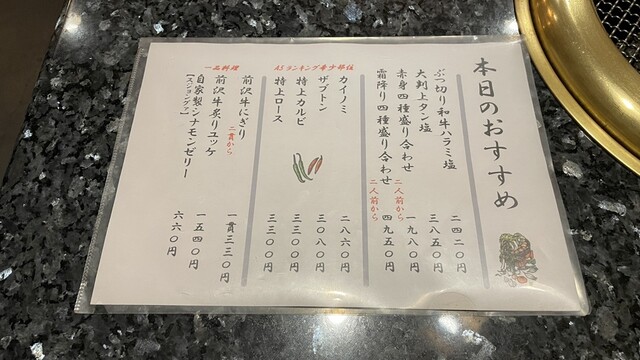 本日のおすすめ
ぶつ切り和牛ハラミ塩 二四二〇円
大判上タン塩 三八五〇円
赤身四種盛り合わせ 二人前から 一九八〇円
霜降り四種盛り合わせ 二人前から 四九五〇円
A5ランキング希少部位
カイノミ 二八六〇円
ザブトン 三〇八〇円
特上カルビ 三三〇〇円
特上ロース 三三〇〇円
一品料理
前沢牛にぎり 二貫から 一貫三三〇円
前沢牛炙りユッケ 一五四〇円
自家製シナモンゼリー 六六〇円
【スジョングァ】